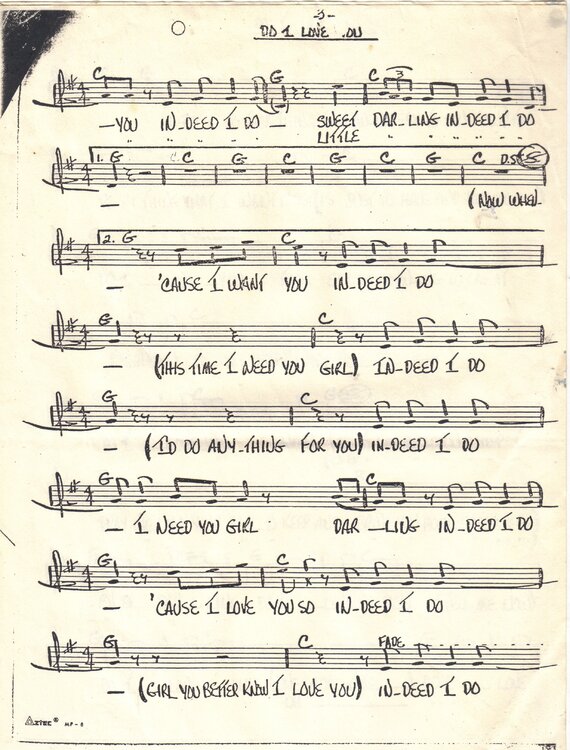 -3-
DO I LOVE OU
C G C 3
— YOU IN-DEED I DO — SWEET DAR-LING IN-DEED I DO
LITTLE " " " " " "
1. G C G C G G C D.S.
(NOW WHEN
2. G C
— 'CAUSE I WANT YOU IN-DEED I DO
G C
— (THIS TIME I NEED YOU GIRL) IN-DEED I DO
G C
— (I'D DO ANY-THING FOR YOU) IN-DEED I DO
G C
— I NEED YOU GIRL DAR-LING IN-DEED I DO
G C
— 'CAUSE I LOVE YOU SO IN-DEED I DO
G C FADE
— (GIRL YOU BETTER KNOW I LOVE YOU) IN-DEED I DO
AZTEC® MP-8